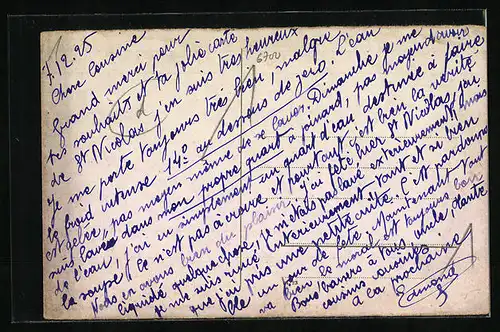 7.12.25
Chère Cousine
Grand merci pour
tes souhaits et ta jolie carte
de St Nicolas, j'en suis très heureux
Je me porte toujours très bien, malgré
le froid intense 14° au dessous de zéro. Dimanche je me
suis lavé dans mon propre quart à pinard, pas moyen d'avoir
de l'eau, j'ai eu simplement un quart d'eau destinée à faire
la soupe. Ce n'est pas à croire et pourtant c'est bien la vérité.
Nous en avons bien du plaisir, j'ai fêté hier St Nicolas, j'ai
liquidé quelque chose, je m'étais pas lavé extérieurement, mais
je me suis rincé intérieurement tant et si bien
que j'ai pris une petite cuite. C'est pardonné
un jour de fête. Maintenant tout
va bien, le moral est toujours bon
Bons baisers à tous, oncle, tante
cousins cousines
à la prochaine
Edmond
6700